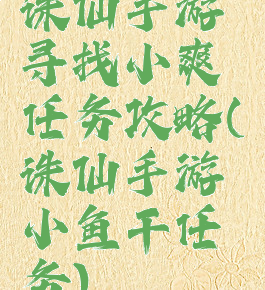 诛仙手游
寻找小爽
任务攻略(
诛仙手游
小鱼干任
务)